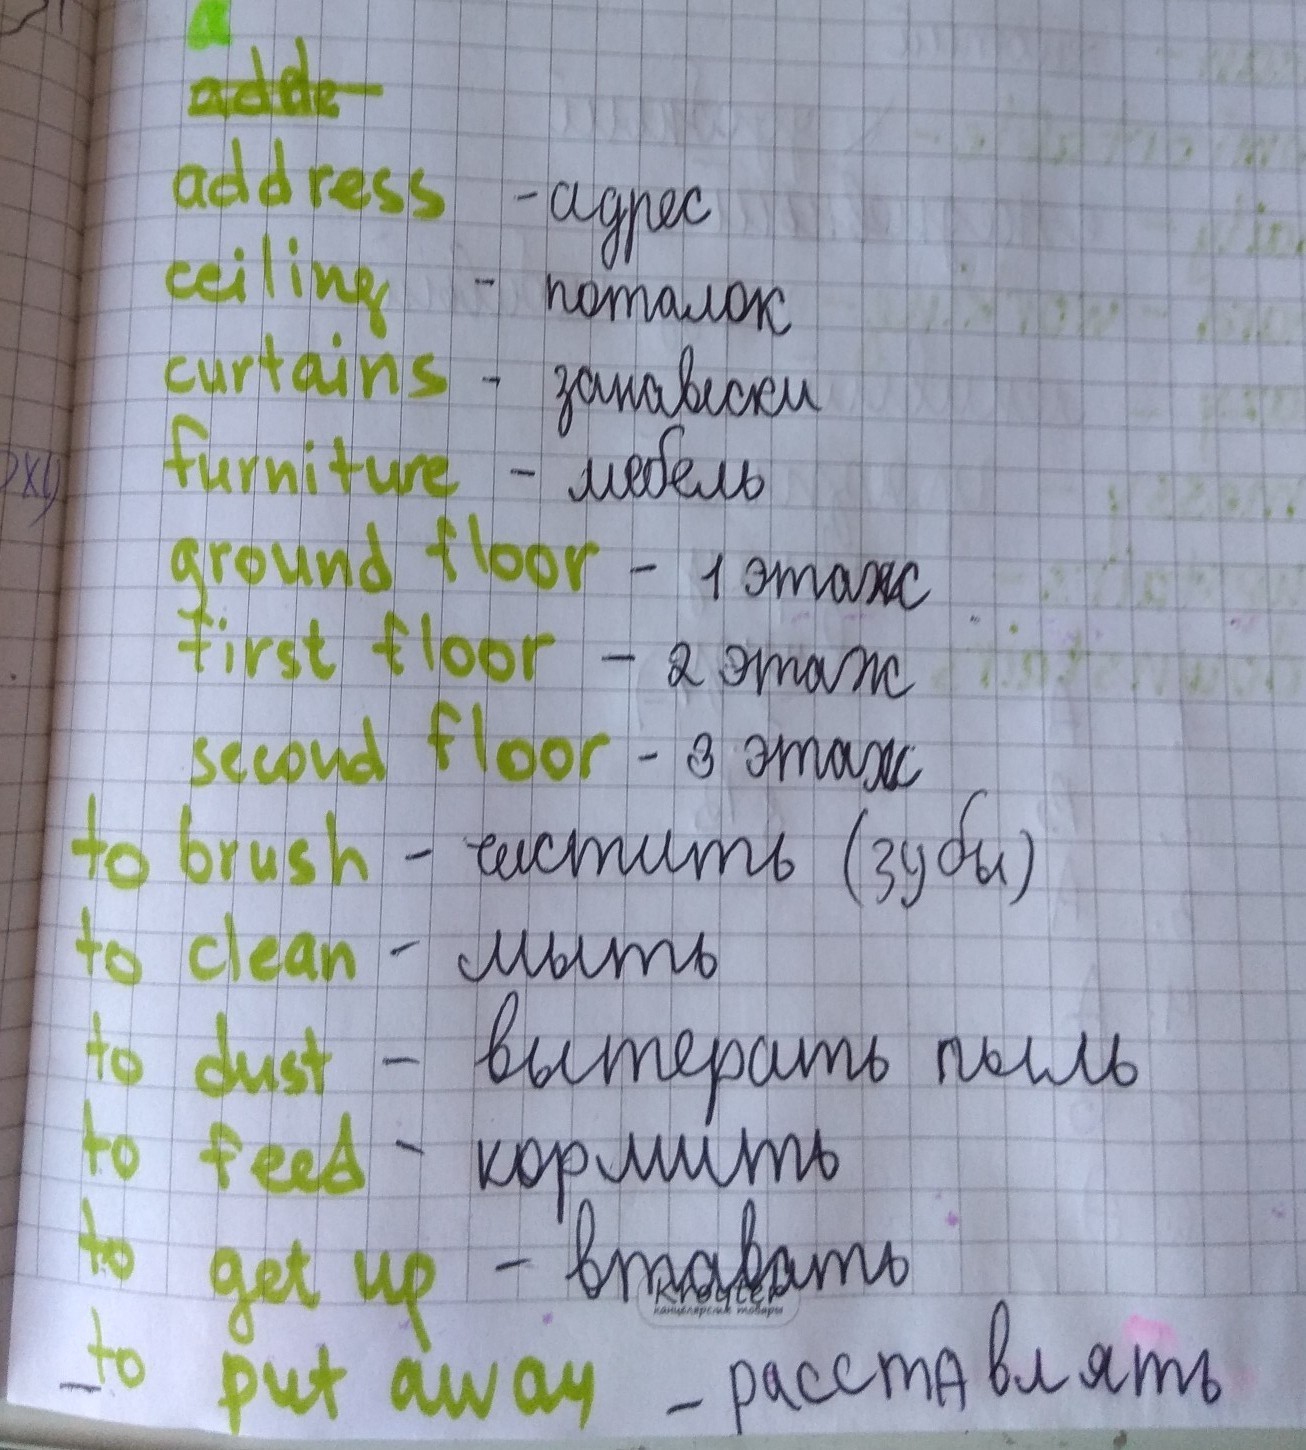 adde
address - адрес
ceiling - поталок
curtains - занависки
furniture - мебель
ground floor - 1 этаж
first floor - 2 этаж
second floor - 3 этаж
to brush - чистить (зубы)
to clean - мыть
to dust - вытерать пыль
to feed - кормить
to get up - вставать
to put away - расставлять
канцелярские товары